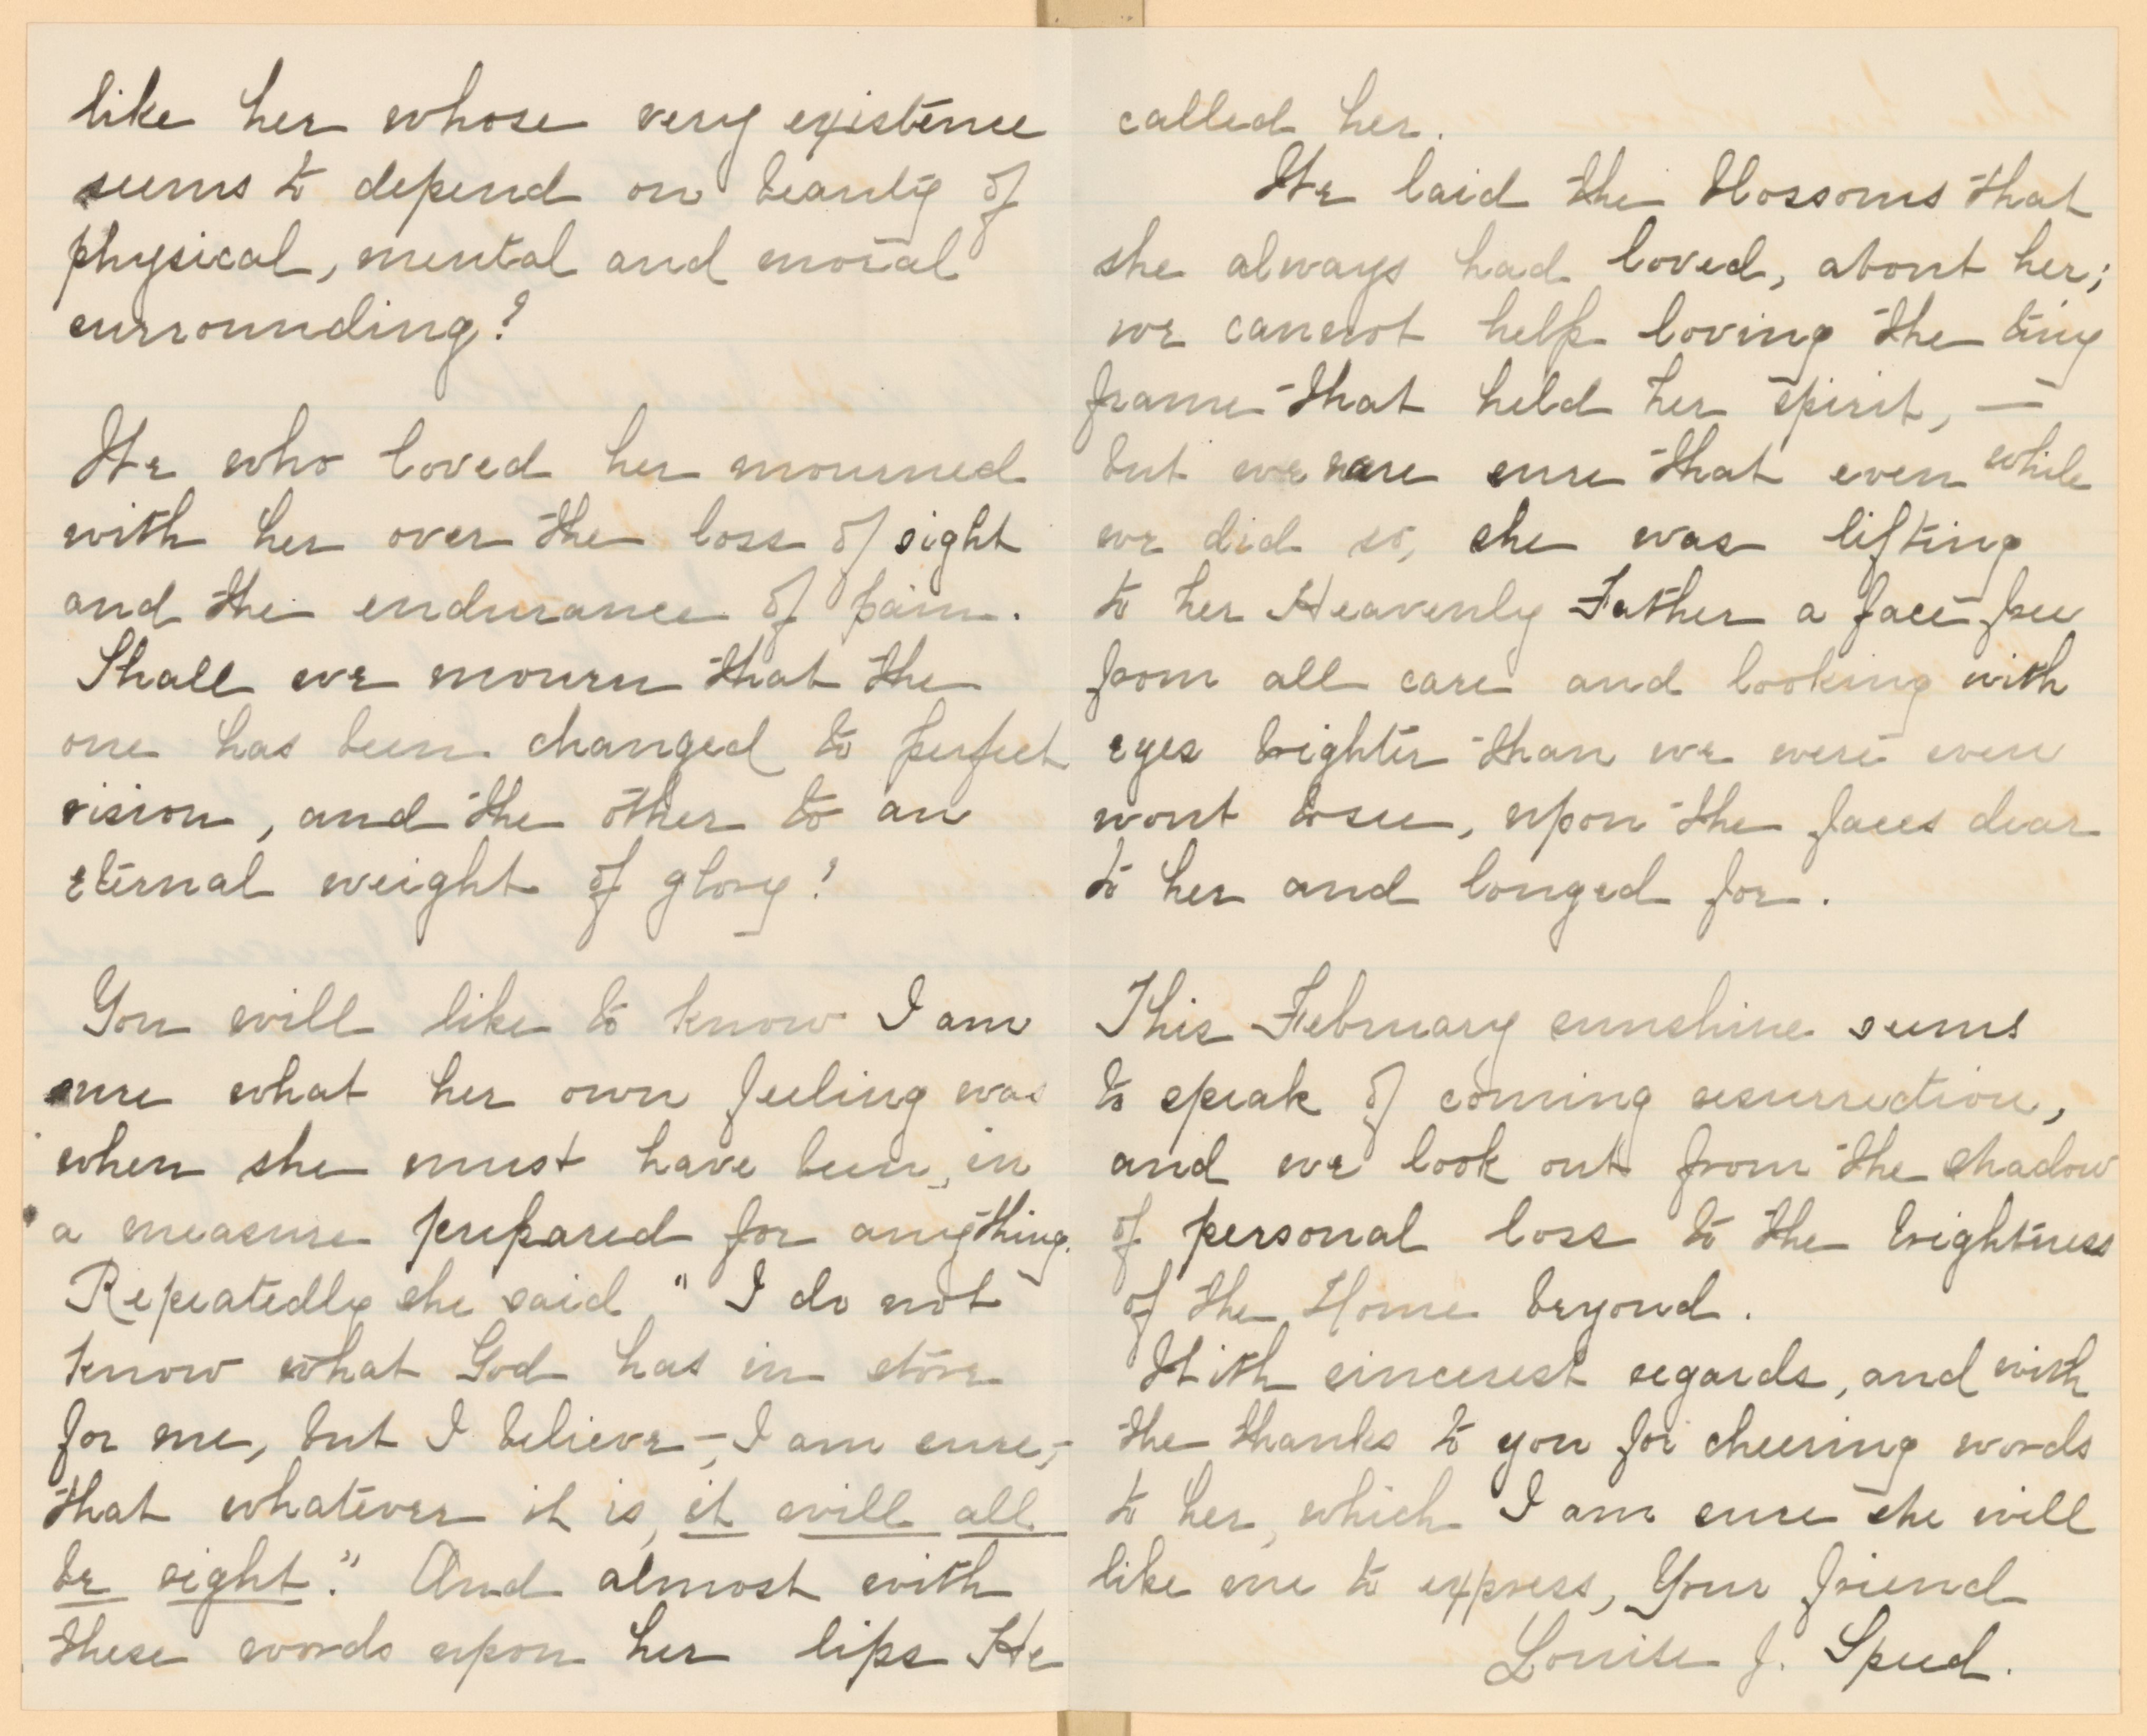 like her whose very existence
seems to depend on beauty of
physical, mental and moral
surrounding?
We who loved her mourned
with her over the loss of sight
and the endurance of pain.
Shall we mourn that the
one has been changed to perfect
vision, and the other to an
eternal weight of glory?
You will like to know I am
sure what her own feeling was
when she must have been, in
a measure prepared for anything.
Repeatedly she said, "I do not
know what God has in store
for me, but I believe,–I am sure,–
that whatever it is, it will all
be right." And almost with
these words upon her lips He
called her.
We laid the blossoms that
she always had loved, about her;
we cannot help loving the tiny
frame that held her spirit, —
but we are sure that even while
we did so, she was lifting
to her Heavenly Father a face free
from all care and looking with
eyes brighter than we were even
wont to see, upon the faces dear
to her and longed for.
This February sunshine seems
to speak of coming resurrection,
and we look out from the shadow
of personal loss to the brightness
of the Home beyond.
With sincerest regards, and with
the thanks to you for cheering words
to her, which I am sure she will
like me to express, Your friend
Louise J. Speed.